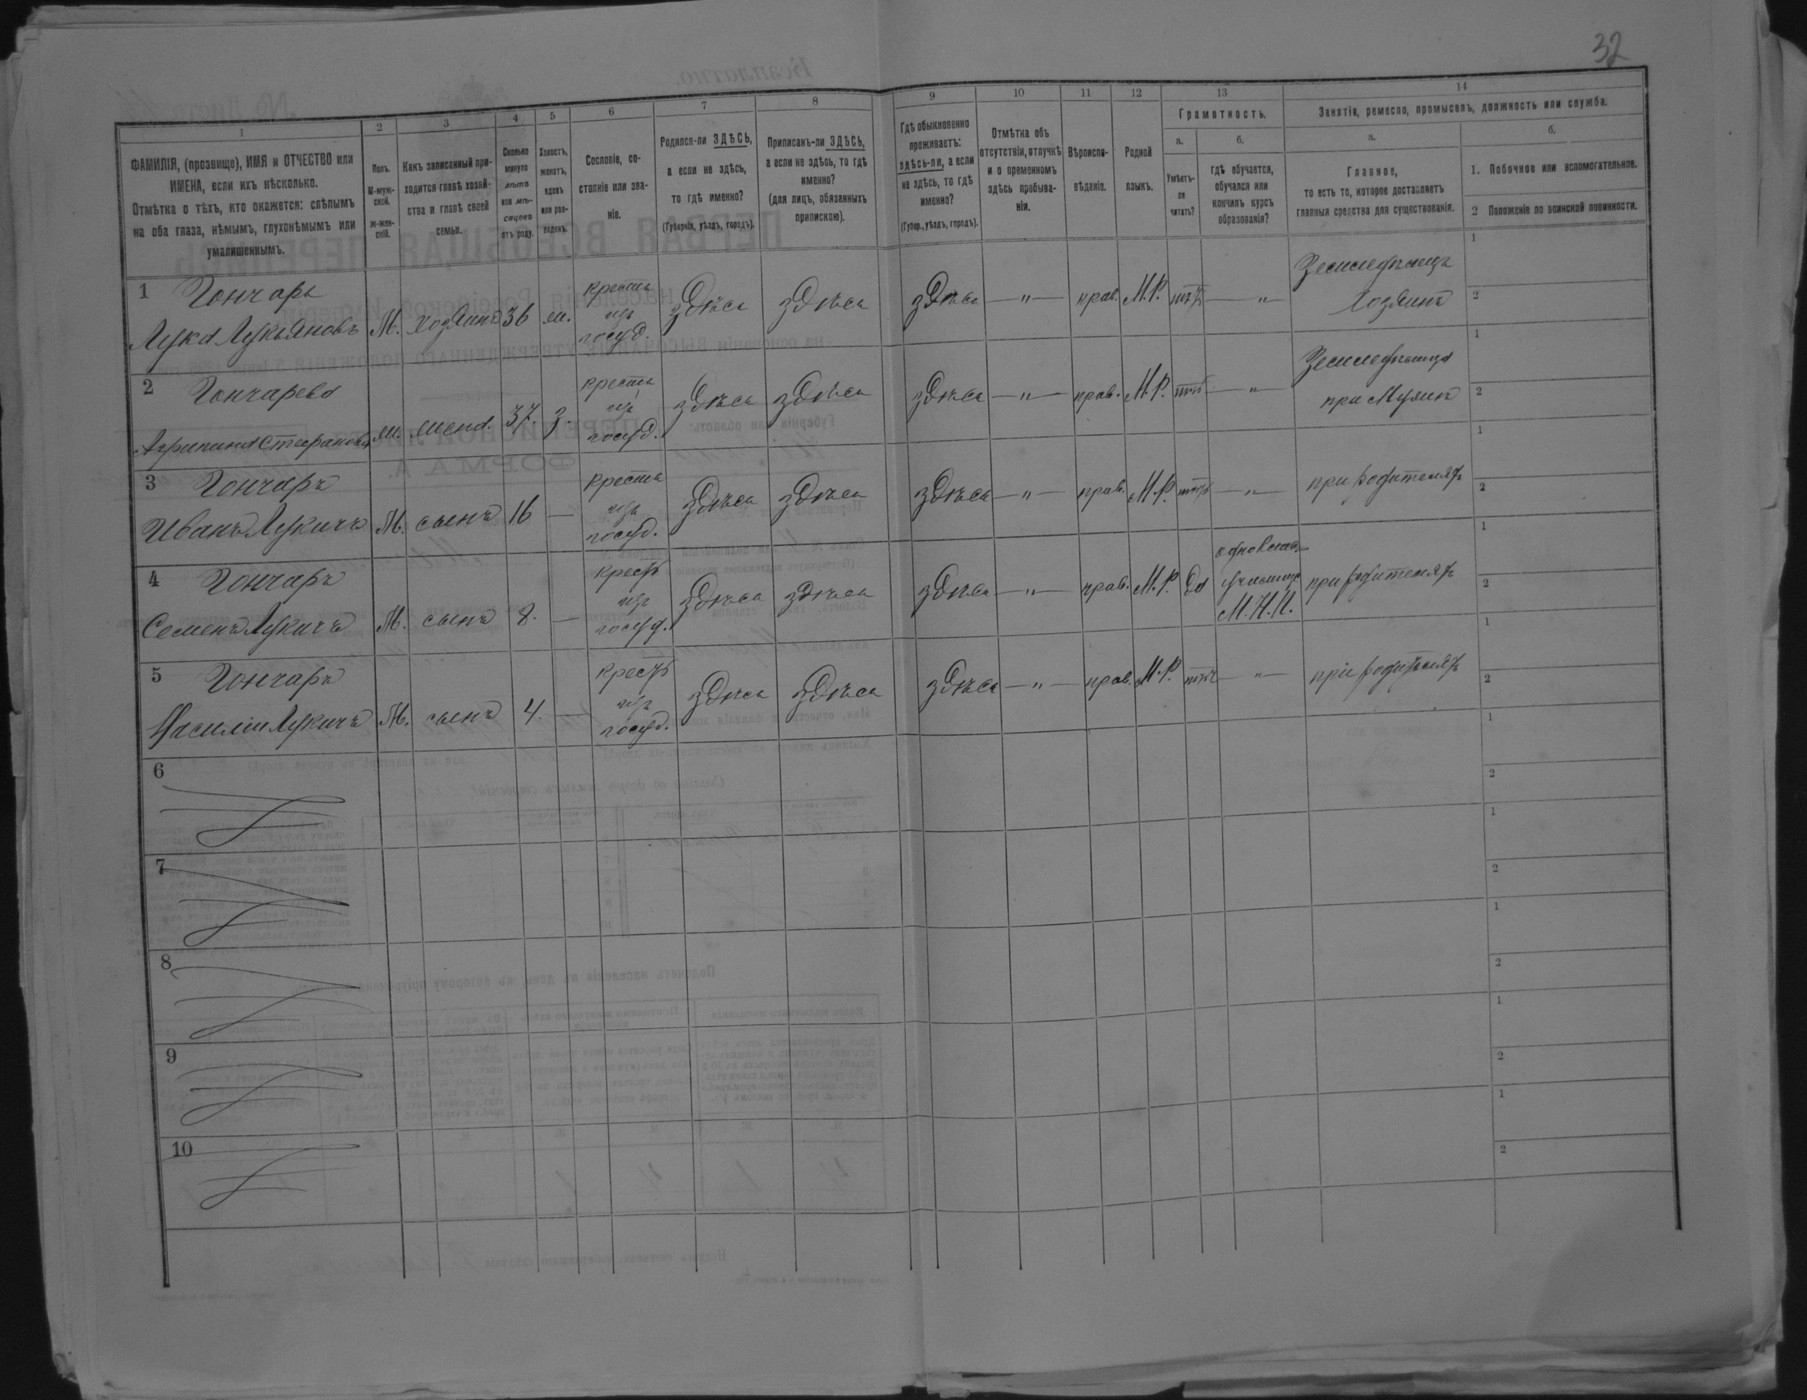 32
1 2 3 4 5 6 7 8 9 10 11 12 13 14
ФАМИЛІЯ, (прозвище), ИМЯ и ОТЧЕСТВО или
ИМЕНА, если ихъ нѣсколько.
Отмѣтка о тѣхъ, кто окажется: слѣпымъ
на оба глаза, нѣмымъ, глухонѣмымъ или
умалишеннымъ.
Полъ.
М-муж-
ской.
ж-жен-
скій.
Какъ записанный при-
ходится главѣ хозяй-
ства и главѣ своей
семьи.
Сколько
минуло
лѣтъ
или мѣ-
сяцевъ
отъ роду.
Холостъ,
женатъ,
вдовъ
или раз-
веденъ.
Сословіе, со-
стояніе или зва-
ніе.
Родился-ли ЗДѢСЬ,
а если не здѣсь,
то гдѣ именно?
(Губернія, уѣздъ, городъ).
Приписанъ-ли ЗДѢСЬ,
а если не здѣсь, то гдѣ
именно?
(для лицъ, обязанныхъ
припискою).
Гдѣ обыкновенно
проживаетъ:
здѣсь-ли, а если
не здѣсь, то гдѣ
именно?
(Губер., уѣздъ, городъ).
Отмѣтка объ
отсутствіи, отлучкѣ
и о временномъ
здѣсь пребыва-
ніи.
Вѣроиспо-
вѣданіе.
Родной
языкъ.
Грамотность.
а.
Умѣетъ-
ли
читать?
б.
гдѣ обучается,
обучался или
кончилъ курсъ
образованія?
Занятія, ремесло, промыселъ, должность или служба.
а.
Главное,
то есть то, которое доставляетъ
главныя средства для существованія.
б.
1. Побочное или вспомогательное.
2 Положеніе по воинской повинности.
1 Гончаръ
Лука Лукьяновъ М. хозяинъ 36 ж. крестья изъ госуд. здѣсь здѣсь здѣсь — „ — прав. М.Р. нѣтъ — „ Земледѣлецъ Хозяинъ 1 2
2 Гончарева
Агрипина Стефановна ж. жена. 37. з. крестья изъ госуд. здѣсь здѣсь здѣсь — „ — прав. М.Р. нѣтъ — „ — Земледѣлица при Мужѣ 1 2
3 Гончаръ
Иванъ Лукичъ М. сынъ 16 — крестья изъ госуд. здѣсь здѣсь здѣсь — „ — прав. М.Р. нѣтъ — „ — при родителяхъ 1 2
4 Гончаръ
Семенъ Лукичъ М. сынъ 8. — крест. изъ госуд. здѣсь здѣсь здѣсь — „ — прав. М.Р. Да училище М.Н.П. при родителяхъ 1 2
5 Гончаръ
Василій Лукичъ М. сынъ 4. — крест. изъ госуд. здѣсь здѣсь здѣсь — „ — прав. М.Р. нѣтъ — „ — при родителяхъ 1 2
6 1 2
7 1 2
8 1 2
9 1 2
10 1 2